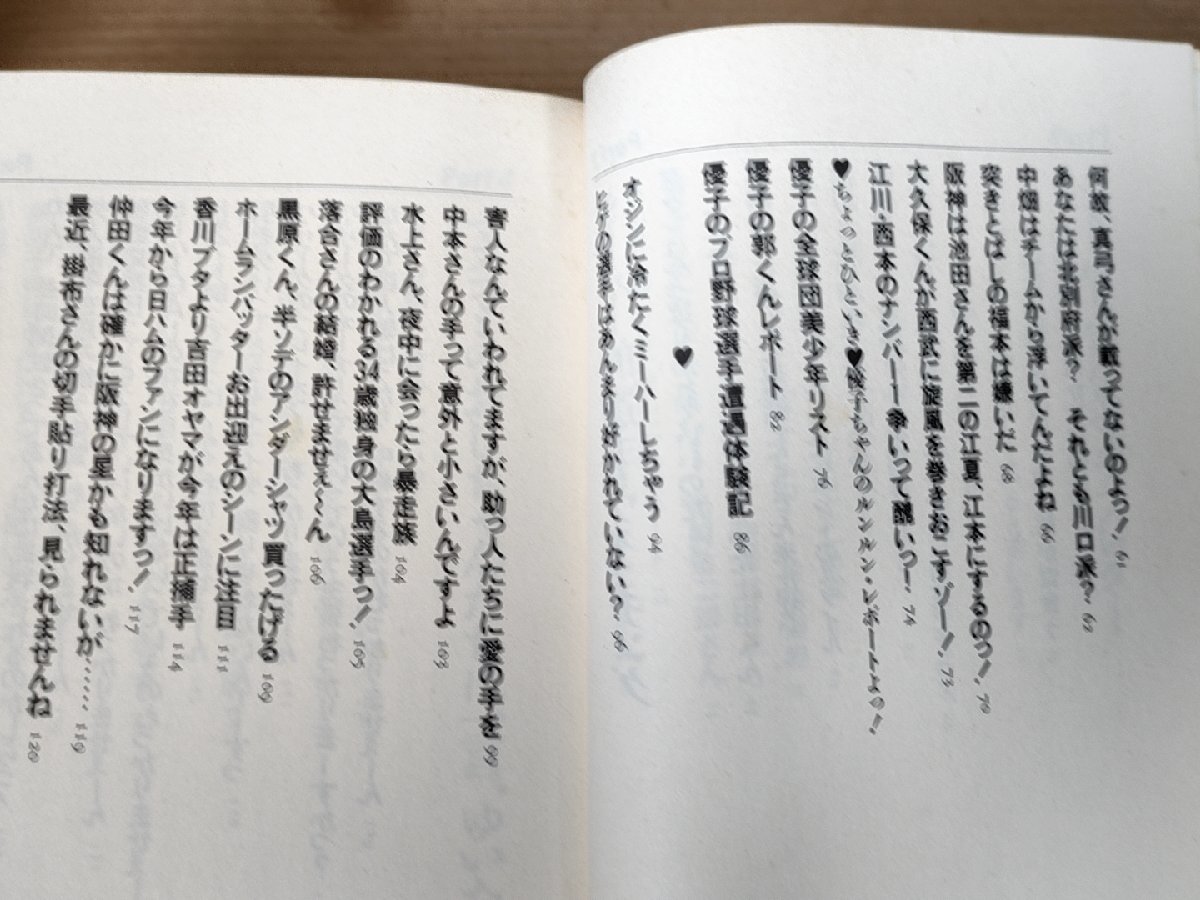 何故、真弓さんが載ってないのよっ! 61
あなたは北別府派? それとも川口派? 62
中畑はチームから浮いてんだよね 66
突きとばしの福本は嫌いだ 68
阪神は池田さんを第二の江夏、江本にするのっ! 70
大久保くんが西武に旋風を巻きおこすゾー! 73
江川・西本のナンバー1争いって醜いっ! 74
♥ちょっとひといき♥優子ちゃんのルンルン・レポートよの!
優子の全球団美少年リスト 76
優子の郭くんレポート 82
優子のプロ野球選手遭遇体験記 86
♥
オジンに冷たくミーハーしちゃう 94
ヒゲの選手はあんまり好かれていない? 96
害人なんていわれてますが、助っ人たちに愛の手を 99
中本さんの手って意外と小さいんですよ 103
水上さん、夜中に会ったら暴走族 104
評価のわかれる34歳独身の大島選手っ! 105
落合さんの結婚、許せませぇ〜ん 106
黒原くん、半ソデのアンダーシャツ買ったげる 109
ホームランバッターお出迎えのシーンに注目 111
香川ブタより吉田オヤマが今年は正捕手 114
今年から日ハムのファンになりますっ! 117
仲田くんは確かに阪神の星かも知れないが…… 119
最近、掛布さんの切手貼り打法、見られませんね 120